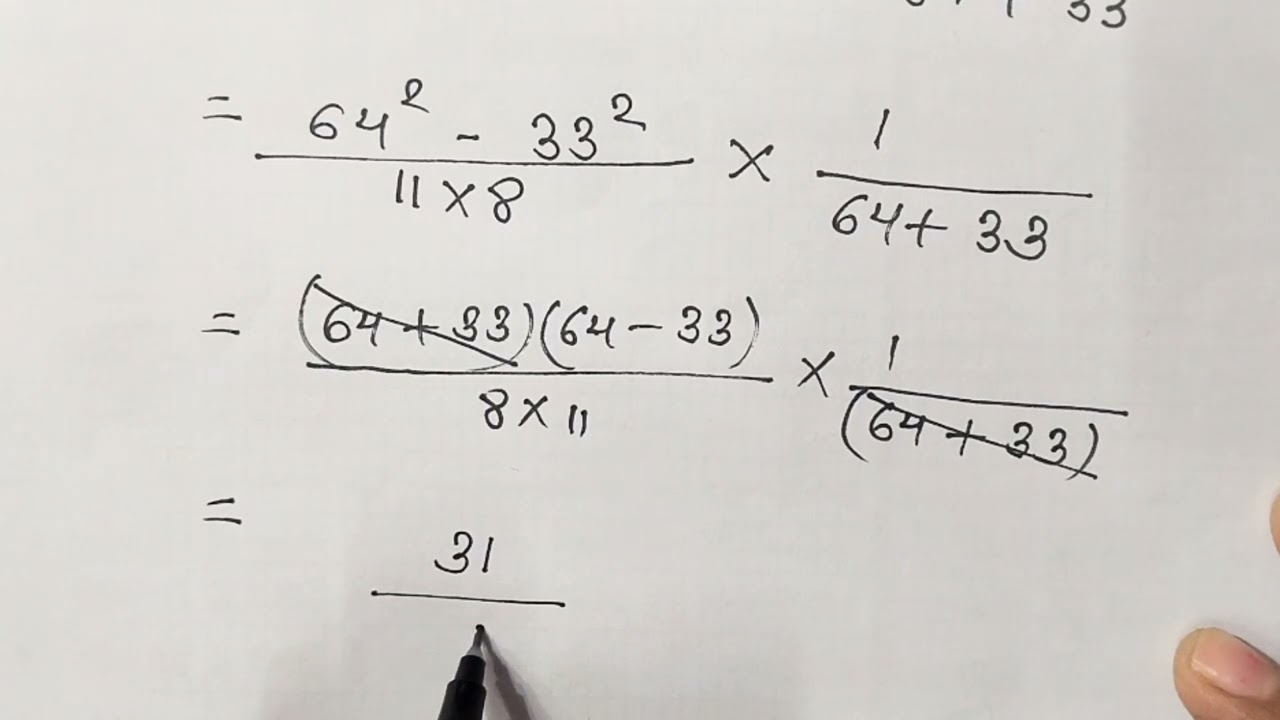 33
= 64² - 33² / 11 × 8 × 1 / 64 + 33
= (64 + 33)(64 - 33) / 8 × 11 × 1 / (64 + 33)
= 31